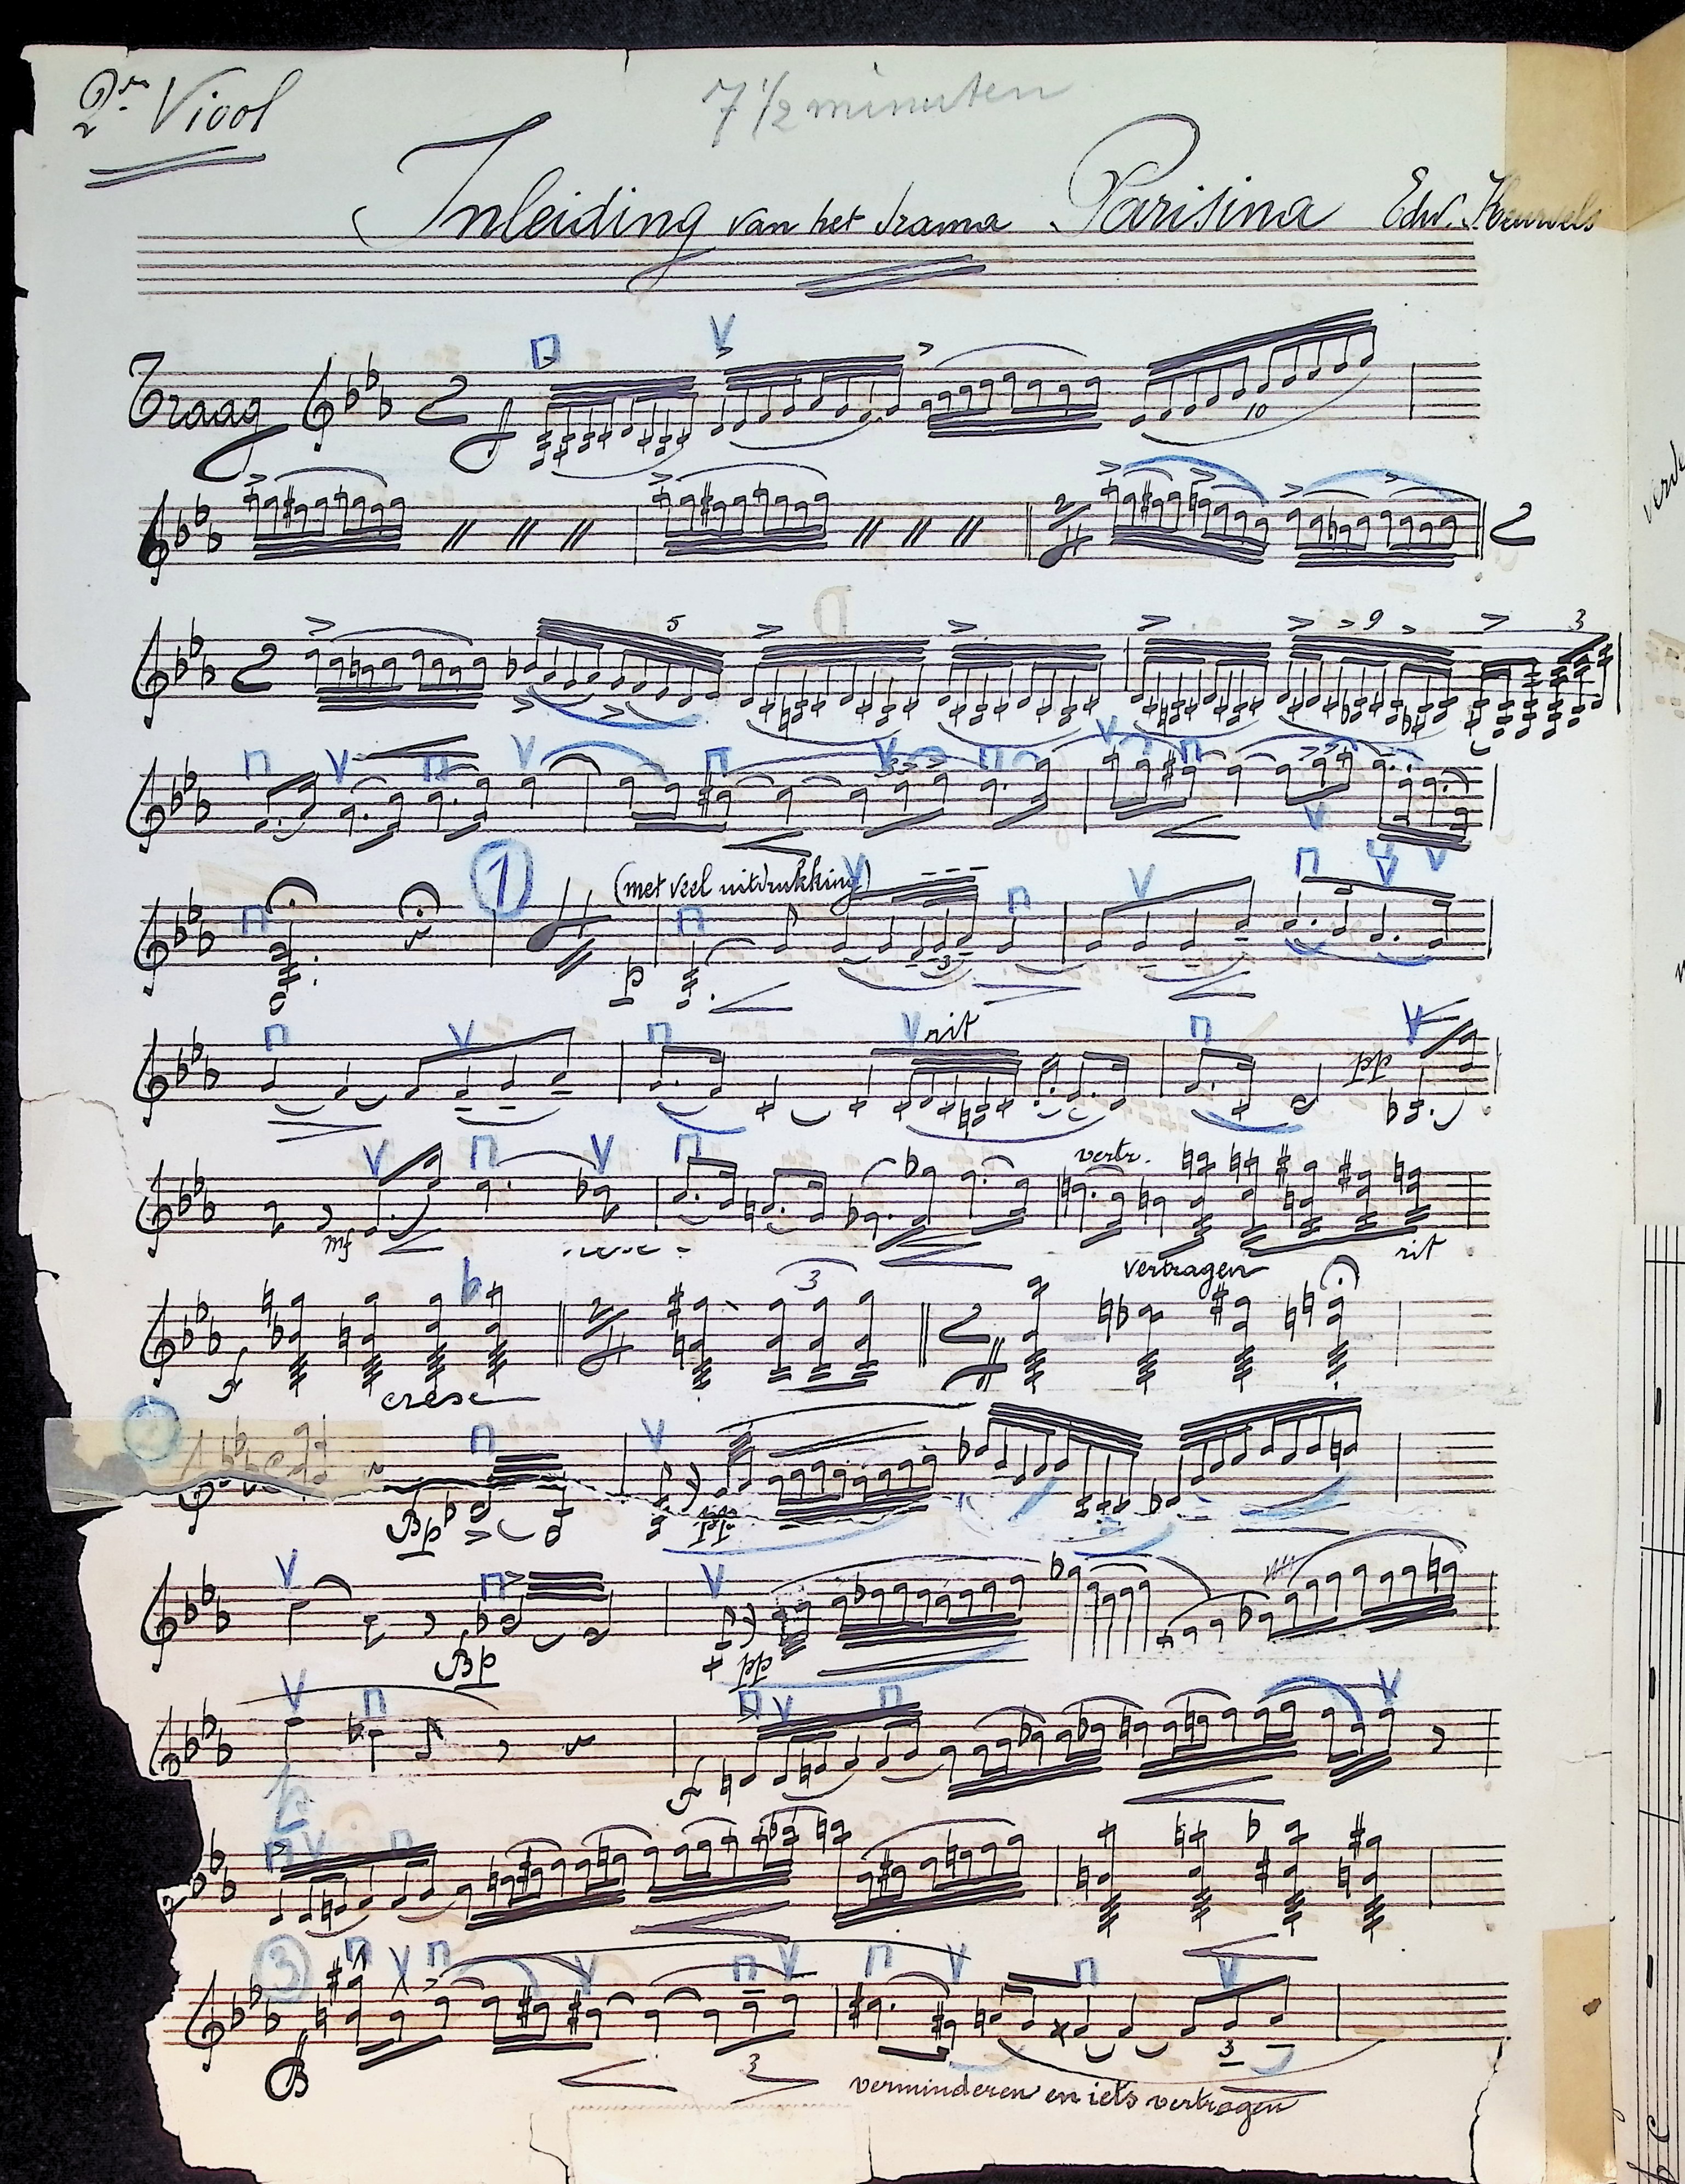 2de Viool
7 1/2 minuten
Inleiding van het drama Parisina Edw. Keurvels
Traag 2 f 10
2/4 2
2 5 9 3
1 (met veel uitdrukking)
p 3
rit
pp
vertr.
mf
vertragen rit
3
f 2/4 2
cresc
2
fp
pp
fp pp
f
p
3
3 3
verminderen en iets vertragen